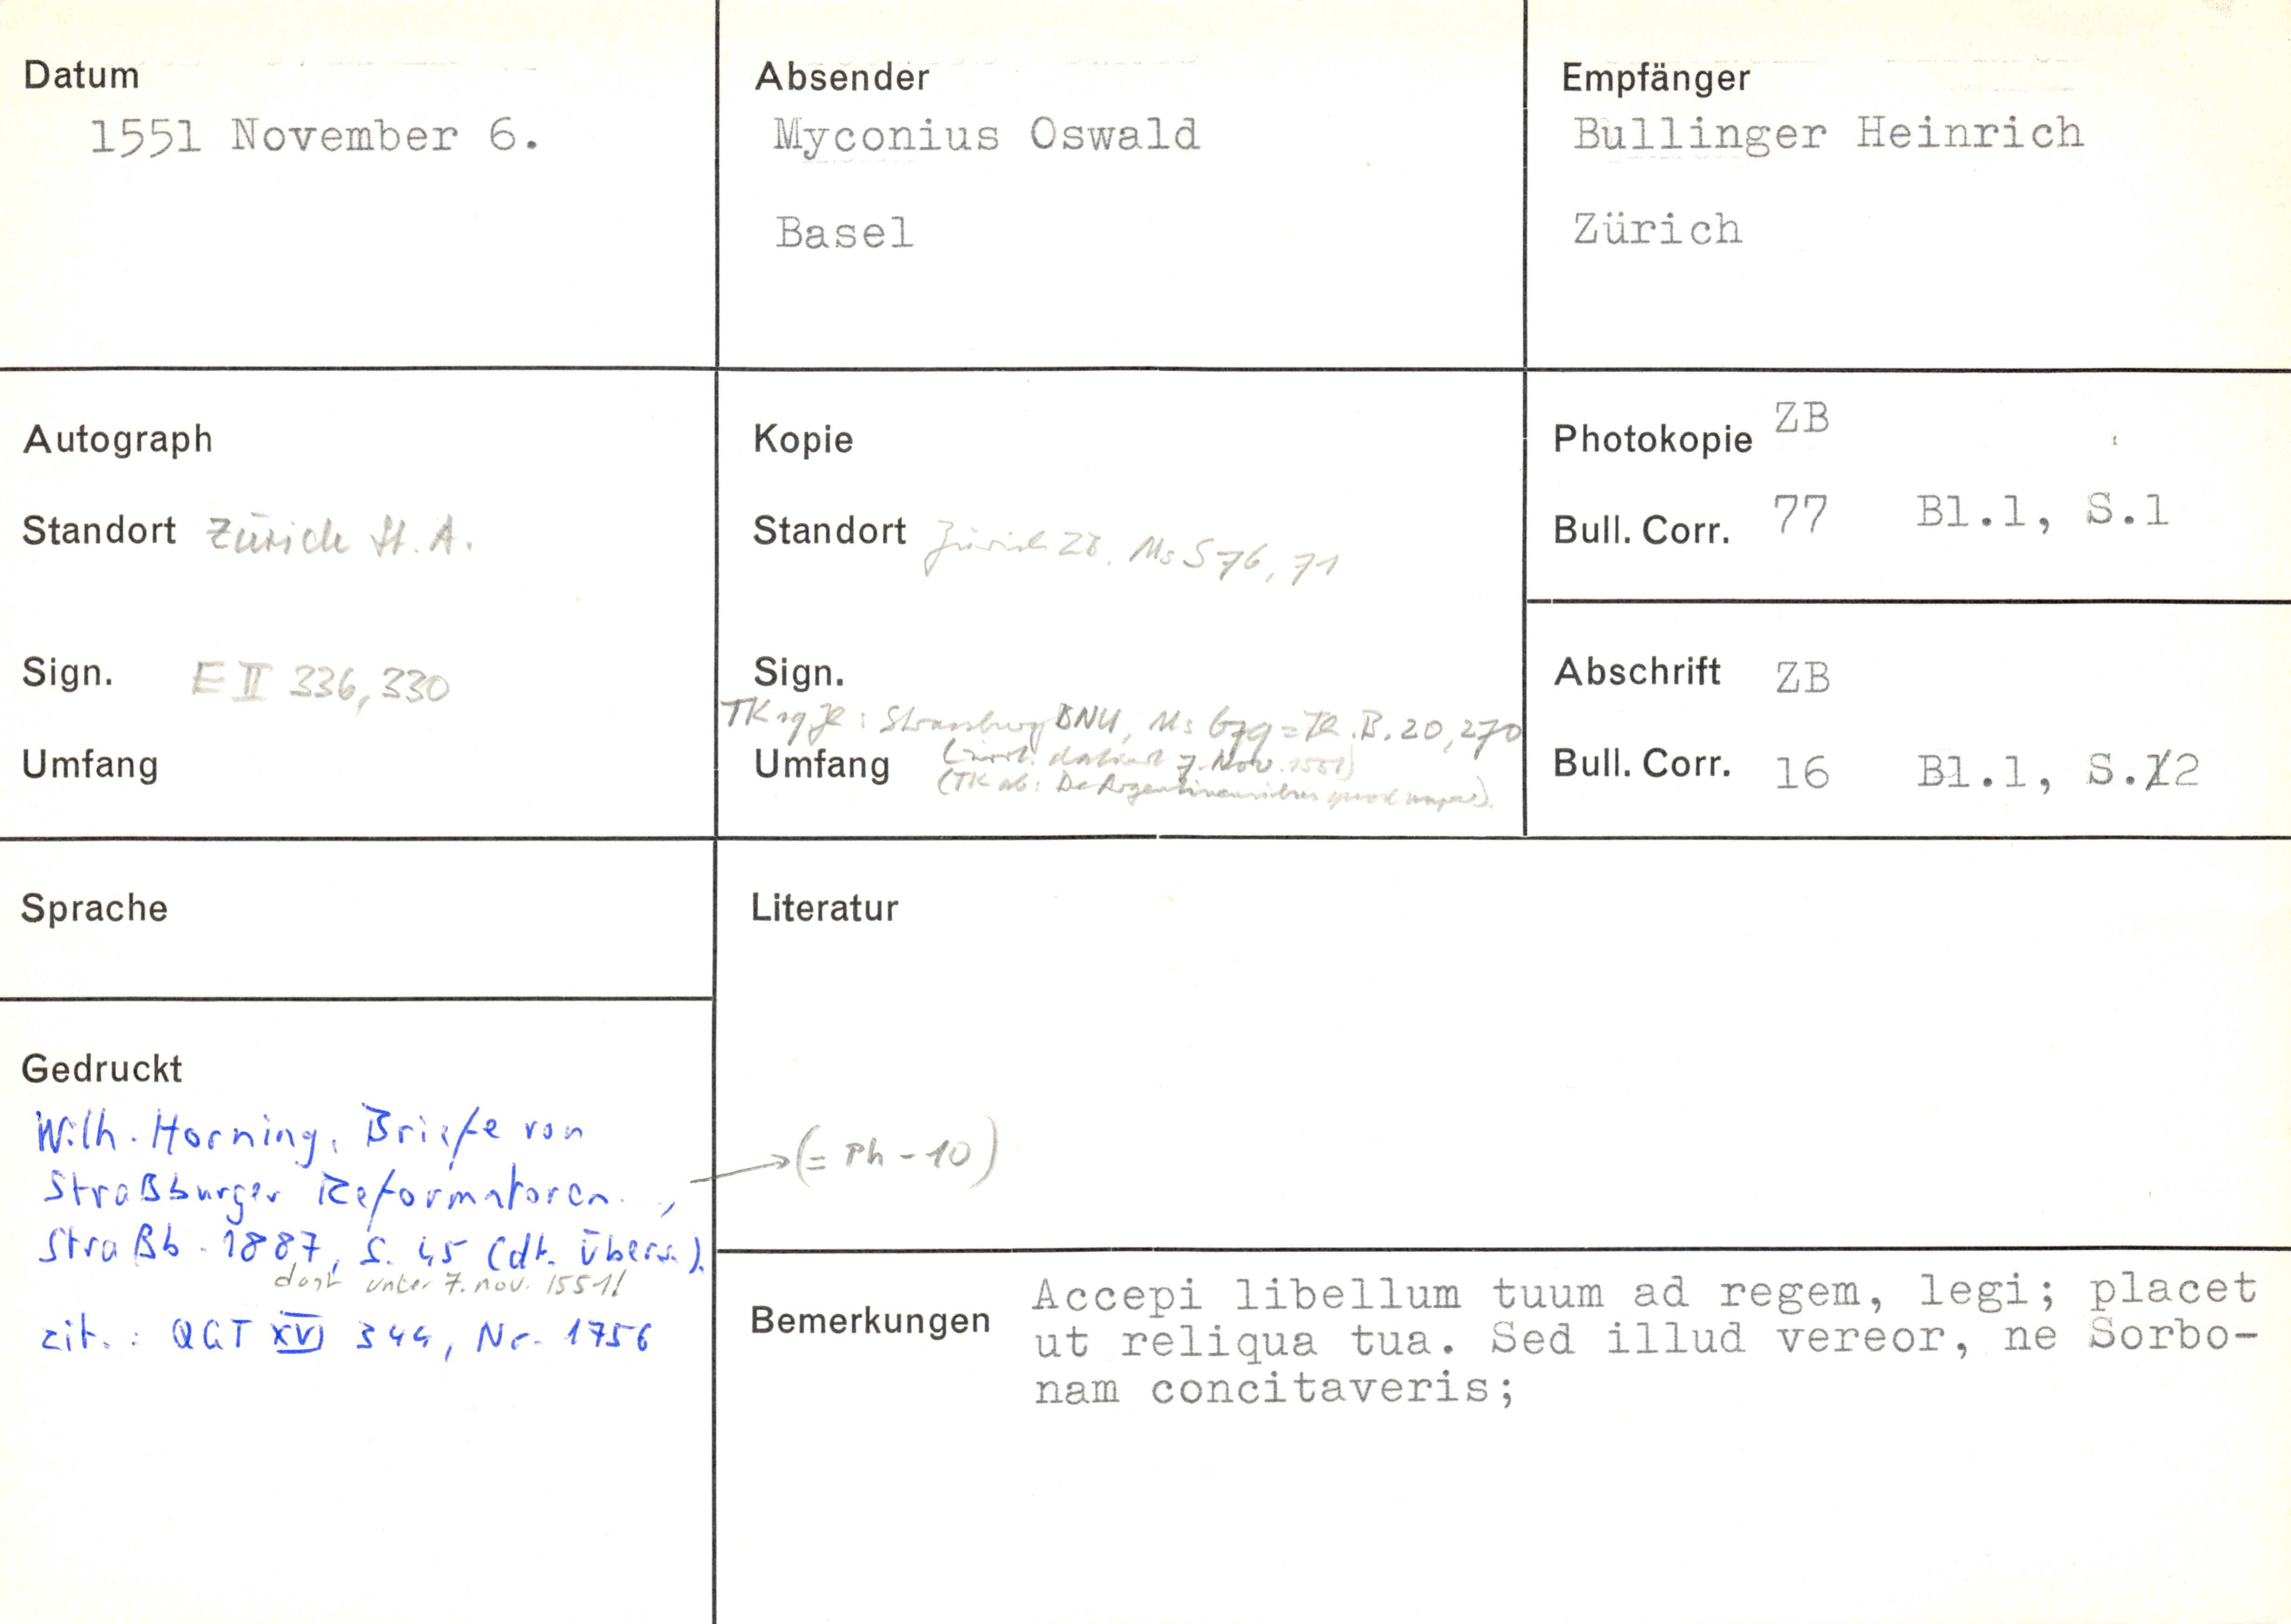 Datum
1551 November 6.
Absender
Myconius Oswald
Basel
Empfänger
Bullinger Heinrich
Zürich
Autograph
Standort Zürich St. A.
Sign. E II 336, 330
Umfang
Kopie
Standort Zürich ZB. Ms S 76, 71
Sign.
TK : Strassburg BNU, Ms = . B. 20, 270
Umfang
(irrt. datiert 7. Nov. 1551)
(TK ab: De Argentinensibus quod).
Photokopie ZB
Bull. Corr. 77 Bl.1, S.1
Abschrift ZB
Bull. Corr. 16 Bl.1, S.12
Sprache
Literatur
(= Ph-10)
Gedruckt
Wilh. Horning, Briefe von
Straßburger Reformatoren.,
Straßb. 1887, S. 45 (dt. Übers.).
dort unter 7. nov. 1551!
zit.: QGT XVI 344, Nr. 1756
Bemerkungen
Accepi libellum tuum ad regem, legi; placet
ut reliqua tua. Sed illud vereor, ne Sorbo-
nam concitaveris;